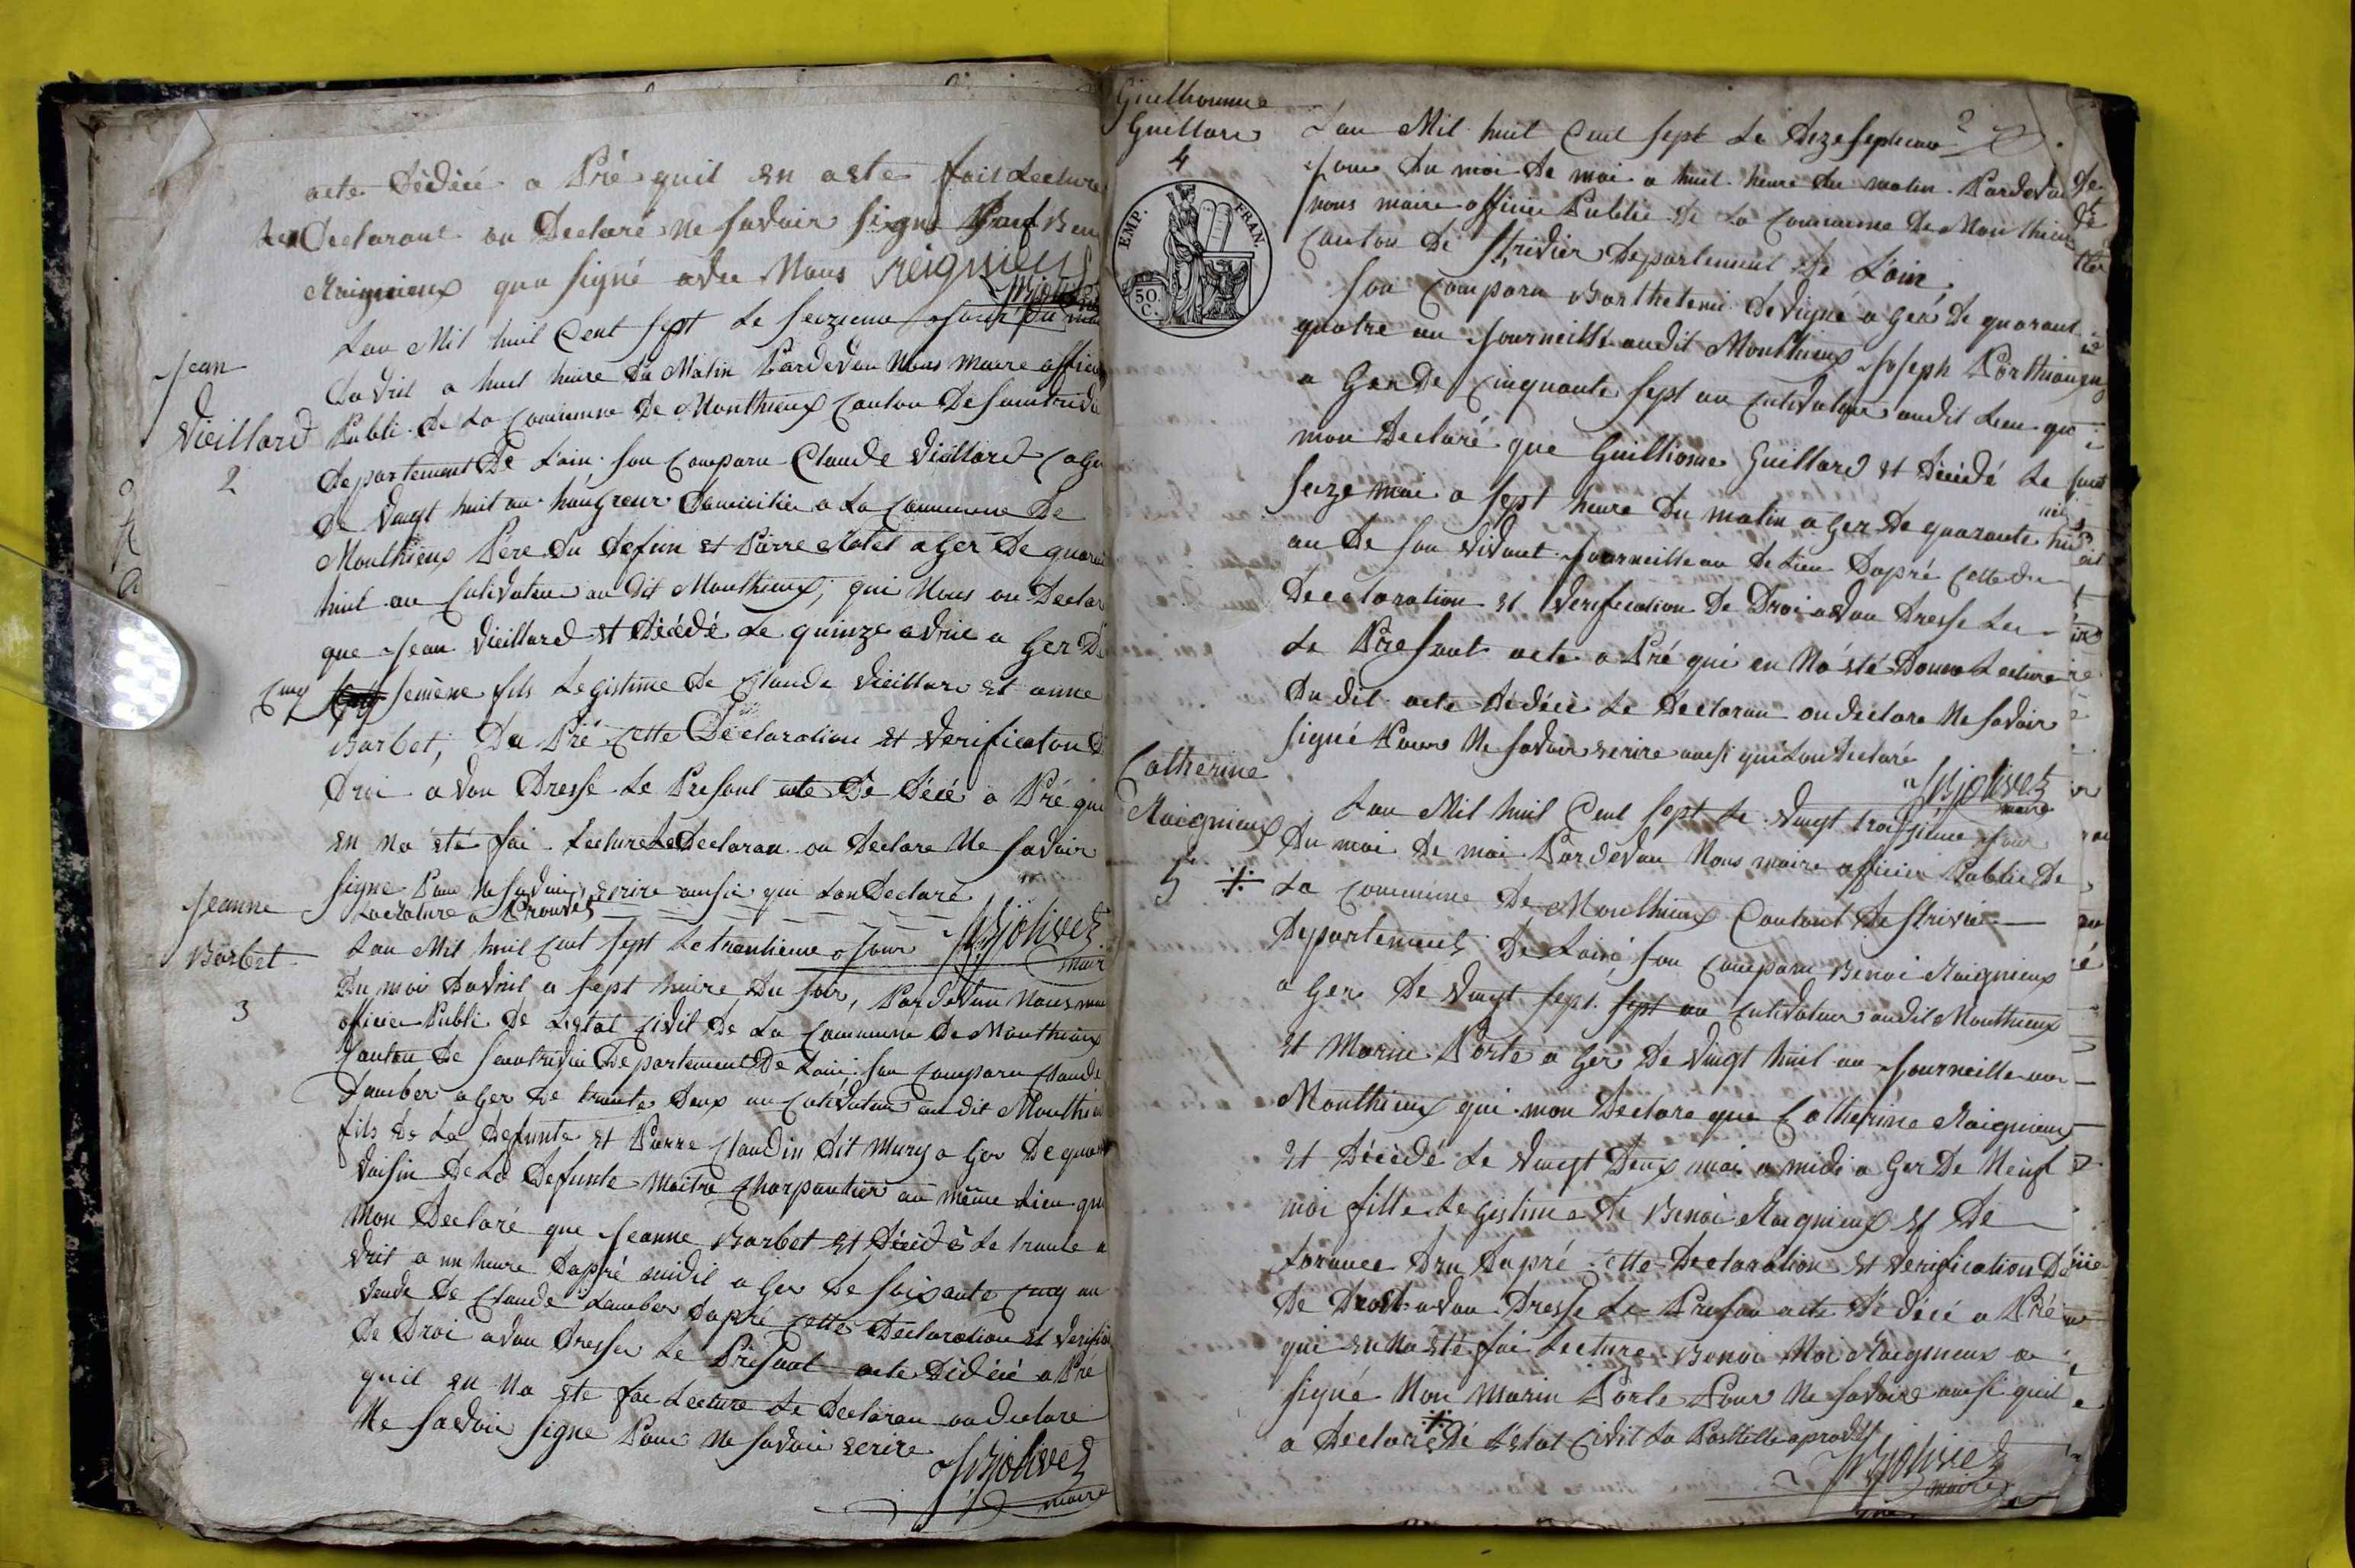 acte Dédécé a Pré quil en a ete fait Lecture
Les Declarant on Declaré ne Savoir signé Sauf Ben
Raignieux qua signé avec Nous Reignieux
JBJolivet
Jean
Vieillard
2
Lan Mil huit Cent sept Le Seizieme Jour du moi
Davril a huit heure Du Matin Pardevan Nous Maire officier
Publi De La Commune De Monthieux Canton De Saintrivié
Departement De Lain Son Comparu Claude Vieillard a Ger
De Vingt huit an Domicilié a La Commune De
Monthieux Pere du Defun Et Pierre a Ger De quarante
huit an Cultivateur au Dit Monthieux, qui Nous on Declaré
que Jean Vieillard Et Décédé Le quinze avril a Ger De
Cinq Semene fils Legistime De Claude Vieillard Et anne
Barbet, Da Pré Cette Declaration Et Verification De
Droi avon Dresse Le Presant acte De Décé a Pré qui
En na eté fai Lecture Le Declaran on Declare Ne Savoir
Signe Pour Ne Savoir Ecrire ainsi qui Lon Declaré
La Rature a Prouvés
JBJolivet
maire
Jeanne
Barbet
3
Lan Mil huit Cent sept Le trantieme Jour
Du moi Davril a sept heure Du Soir, Pardevan Nous maire
officier Publi De Letat Civil De La Commune De Monthieux
Canton De Saintrivié Departement De Lain Son Comparu Claude
Lamber a Ger De trante Deux an Cultivateur audit Monthieux
fils De La Defunte Et Pierre Claudin Dit Mury a Ger De quarante
Voisin De La Defunte Maitre Charpantier au même Lieu qui
Mon Declaré que Jeanne Barbet Et Décédé Le trante a
vril a un heure Dapré midil a Ger De Soixante Cinq an
Veuve De Claude Lamber Dapré Cette Declaration Et Verification
De Droi avon Dresser Le Présant acte Dédécé a Pré
quil En Na ete fai Lecture Le Declaran on Declare
Ne Savoir Signe Pour Ne Savoir Ecrire
JBJolivet
maire
Guilhomme
Guillard
4
EMP. FRAN.
50. C.
Lan Mil huit Cent sept Le Dezeseptieme
Jour Du moi De mai a huit heure Du matin Pardevan
nous maire officier Public De La Commune De Monthieux
Canton De Strivier Departement De Lain
Son Comparu Barthelemi Devigné a Ger De quarant
quatre an Journeillé audit Monthieux Joseph
a Ger De Cinquante Sept an Cultivateur audit Lieu qui
mon Declaré que Guillhome Guillard Et Décédé Le
Seize mai a Sept heure Du matin a Ger De quarante huit
an De Son Vivant Journeille au Dé Lieu Dapré Cette
Declaration Et Verification De Droi avon Dresse Le
Le Presant acte a Pré qui en Na eté Donné Lecture
Du dit acte Dédécé Le Declaran on declare Ne Savoir
Signé Pour Ne Savoir Ecrire ainsi qui Lon Declaré
JBJolivet
maire
Catherine
Raignieux
5
Lan Mil huit Cent Sept Le Vingt troisgieme Jour
Du moi De mai Pardevan Nous maire officier Public De
La Commune De Monthieux Cantont De Strivié
Departement De Lain, Son Comparu Benoi Raignieux
a Ger De Vingt Sept Sept an Cultivateur audit Monthieux
Et Marin Porte a Ger De Vingt huit an Journeille au
Monthieux qui mon Declare que Catherine Raignieux
Et Décédé Le Vingt Deux mai a midi a Ger De Neuf
moi fille Legistime De Benoi Raignieux Et De
Dapré Cette Declaration Et Verification De
De Droit avon Dresse Le Presan acte Dédécé a Pré
qui En Na Eté fai Lecture Benoi Raignieux a
Signé Non Marin Porte Pour Ne Savoir ainsi quil
a Declaré De Létat Civil La Postille aprouvé
JBJolivet
maire